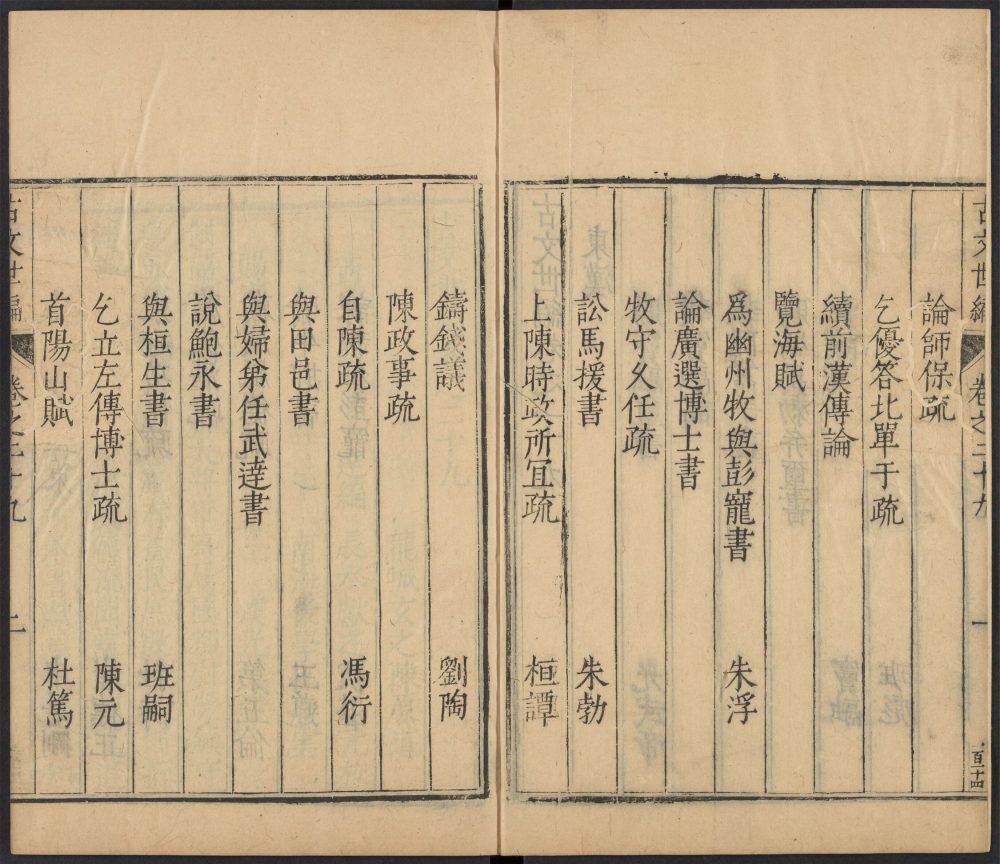 古文世編 卷之二十九 一 百十四
論師保疏
乞優答北單于疏
續前漢傳論
覽海賦
爲幽州牧與彭寵書 朱浮
論廣選博士書
牧守久任疏
訟馬援書 朱勃
上陳時政所宜疏 桓譚
鑄錢議 劉陶
陳政事疏
自陳疏 馮衍
與田邑書
與婦弟任武達書
說鮑永書
與桓生書 班嗣
乞立左傳博士疏 陳元
首陽山賦 杜篤
古文世編 卷之二十九 二